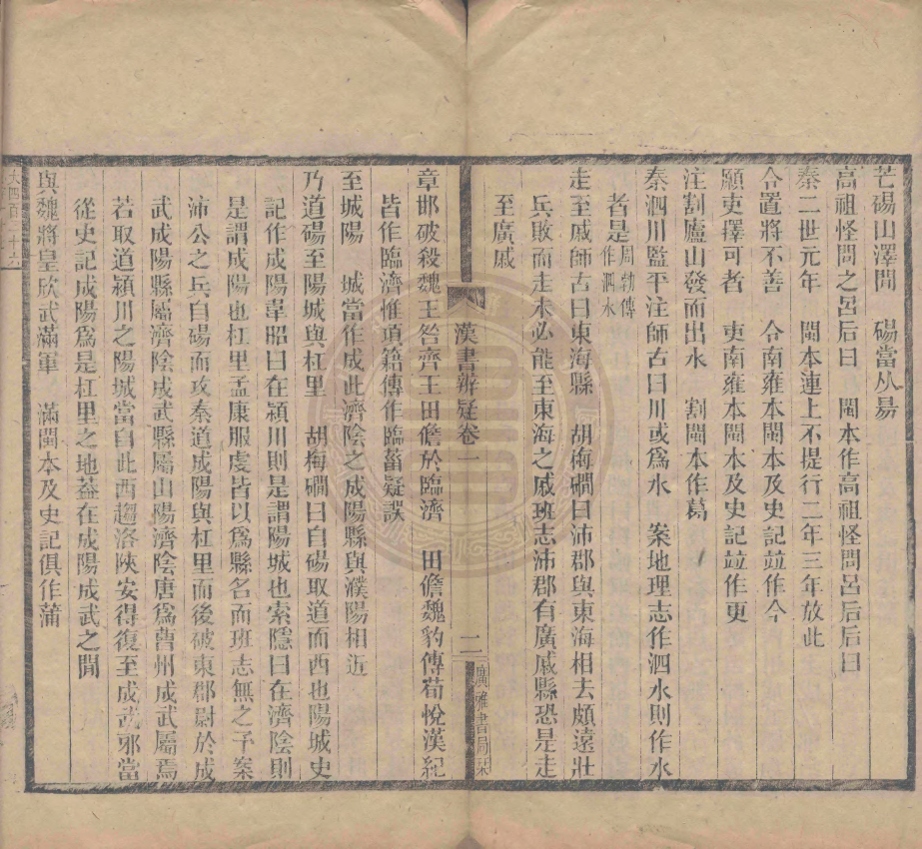 芒碭山澤閒　碭當从昜
高祖怪問之呂后曰　閩本作高祖怪問呂后后曰
秦二世元年　閩本連上不提行二年三年放此
令置將不善　令南雍本閩本及史記竝作今
願吏擇可者　吏南雍本閩本及史記竝作更
注割廬山發而出水　割閩本作葛
秦泗川監平注師古曰川或爲水　案地理志作泗水則作水
者是周勃傳作泗水
走至戚師古曰東海縣　胡梅磵曰沛郡與東海相去頗遠壯
兵敗而走未必能至東海之戚班志沛郡有廣戚縣恐是走
至廣戚
漢書辨疑卷一　二　廣雅書局栞
章邯破殺魏王咎齊王田儋於臨濟　田儋魏豹傳荀悅漢紀
皆作臨濟惟項籍傳作臨菑疑誤
至城陽　城當作成此濟陰之成陽縣與濮陽相近
乃道碭至陽城與杠里　胡梅磵曰自碭取道而西也陽城史
記作成陽韋昭曰在潁川則是謂陽城也索隱曰在濟陰則
是謂成陽也杠里孟康服虔皆以爲縣名而班志無之予案
沛公之兵自碭而攻秦道成陽與杠里而後破東郡尉於成
武成陽縣屬濟陰成武縣屬山陽濟陰唐爲曹州成武屬焉
若取道潁川之陽城當自此西趨洛陝安得復至成武邪當
從史記成陽爲是杠里之地葢在成陽成武之閒
與魏將皇欣武滿軍　滿閩本及史記俱作蒲
大四百二十六